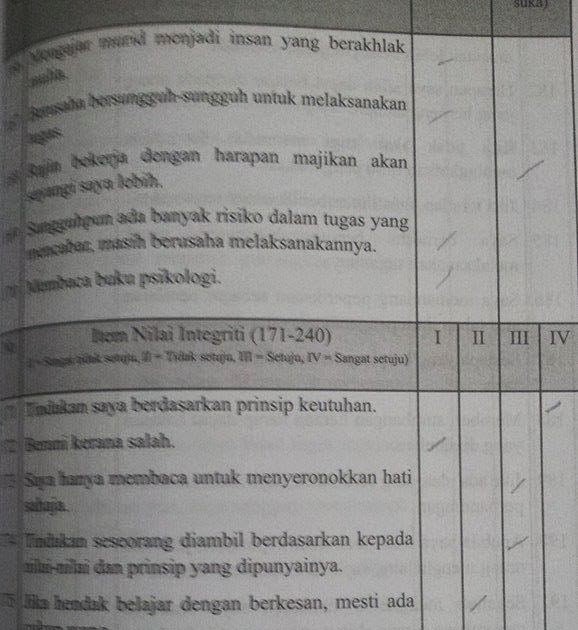 suka)
Mengajar murid menjadi insan yang berakhlak
mulia.
Berusaha bersungguh-sungguh untuk melaksanakan
tugas.
Rajin bekerja dengan harapan majikan akan
sayangi saya lebih.
Sungguhpun ada banyak risiko dalam tugas yang
mencabar, masih berusaha melaksanakannya.
Membaca buku psikologi.
Item Nilai Integriti (171-240) I II III IV
I = Sangat tidak setuju, II = Tidak setuju, III = Setuju, IV = Sangat setuju)
Tindakan saya berdasarkan prinsip keutuhan.
Berani kerana salah.
Saya hanya membaca untuk menyeronokkan hati
sahaja.
Tindakan seseorang diambil berdasarkan kepada
nilai-nilai dan prinsip yang dipunyainya.
Jika hendak belajar dengan berkesan, mesti ada